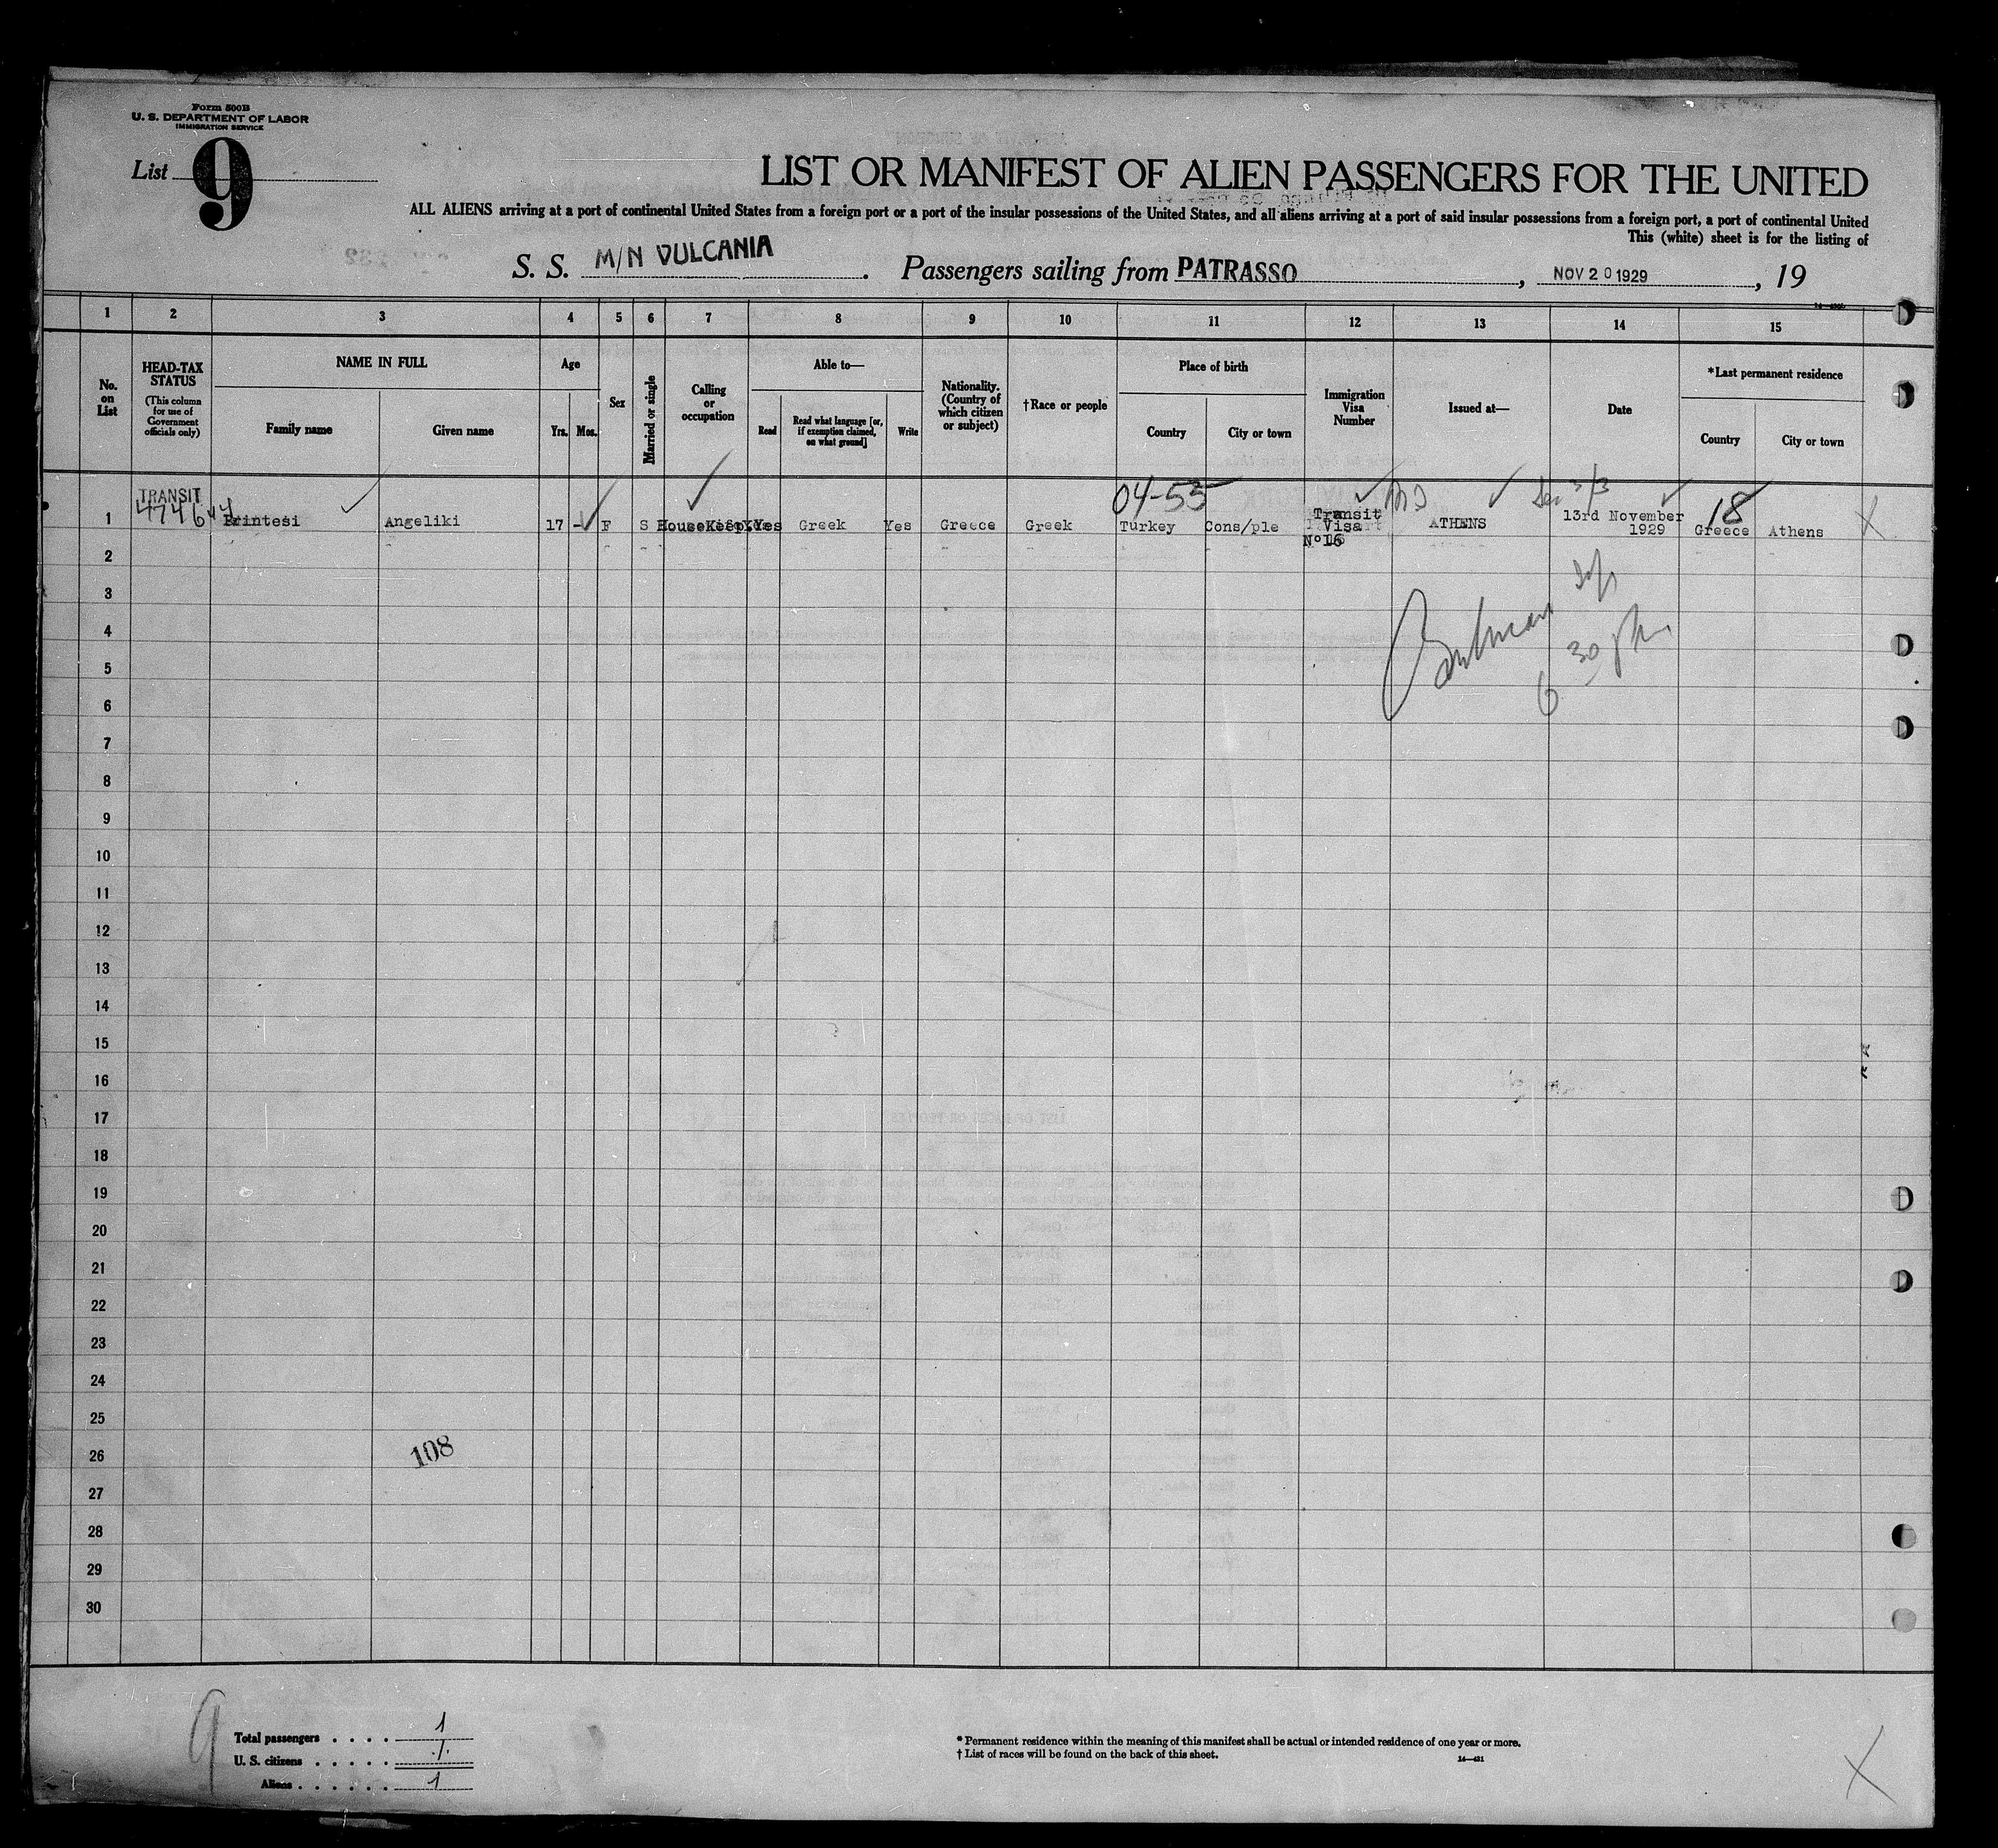 Form 500B
U. S. DEPARTMENT OF LABOR
IMMIGRATION SERVICE
List 9
LIST OR MANIFEST OF ALIEN PASSENGERS FOR THE UNITED
ALL ALIENS arriving at a port of continental United States from a foreign port or a port of the insular possessions of the United States, and all aliens arriving at a port of said insular possessions from a foreign port, a port of continental United
This (white) sheet is for the listing of
S. S. M/N VULCANIA. Passengers sailing from PATRASSO, NOV 20 1929, 19
1 2 3 4 5 6 7 8 9 10 11 12 13 14 15
No. on List
HEAD-TAX STATUS
(This column for use of Government officials only)
NAME IN FULL
Family name
Given name
Age
Yrs. Mos.
Sex
Married or single
Calling or occupation
Able to—
Read
Read what language [or, if exemption claimed, on what ground]
Write
Nationality. (Country of which citizen or subject)
†Race or people
Place of birth
Country
City or town
Immigration Visa Number
Issued at—
Date
*Last permanent residence
Country
City or town
04-55
18
TRANSIT
1 Printesi Angeliki 17 - F S HouseKeep Yes Greek Yes Greece Greek Turkey Cons/ple Transit Visa Nº16 ATHENS 13rd November 1929 Greece Athens X
2
3
4
5
6 30
6
7
8
9
10
11
12
13
14
15
16
17
18
19
20
21
22
23
24
25
26
108
27
28
29
30
9
Total passengers . . . . 1
U. S. citizens . . . . . ./.
Aliens . . . . . . 1
* Permanent residence within the meaning of this manifest shall be actual or intended residence of one year or more.
† List of races will be found on the back of this sheet.
14—421
X